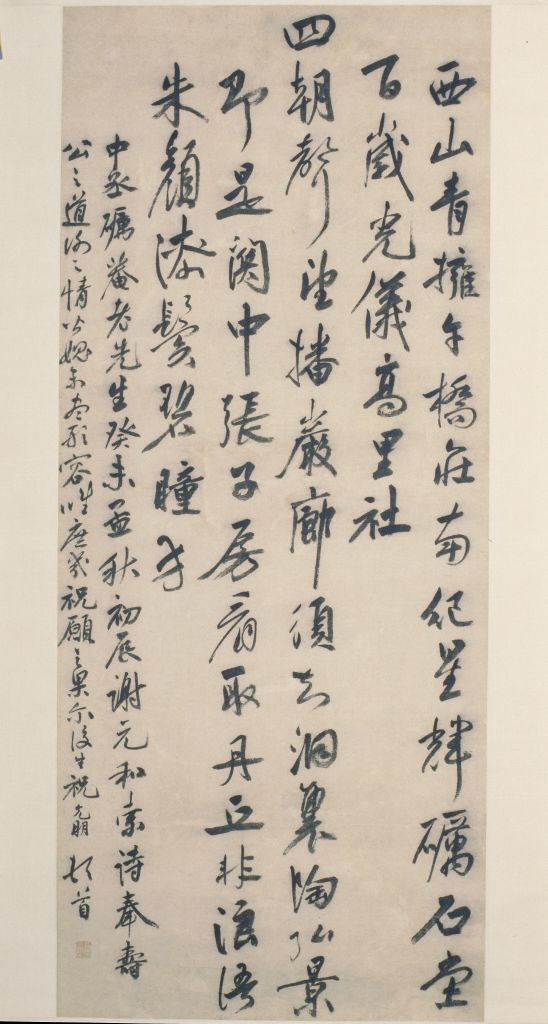 西山青擁午橋莊南紀星輝礪石堂
百歲光儀高里社
四朝聲望播巖廊須知洞裏陶弘景
即是關中張子房看取丹丘非浪語
朱顏漆鬢碧瞳方
中丞礪菴老先生癸未孟秋初辰謝元和索詩奉壽
公之道誼之情皆媿未盡形容惟庶幾祝願之果爾後生祝允明頓首